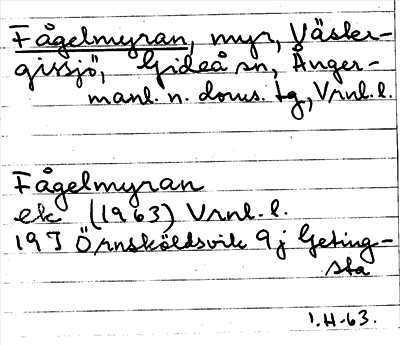 Fågelmyran, myr, Väster-
gissjö, Gideå sn, Ånger-
manl. n. doms. tg, Vrnl. l.
Fågelmyran
ek (1963) Vrnl. l.
19J Örnsköldsvik 9j Geting-
sta
1.H-63.